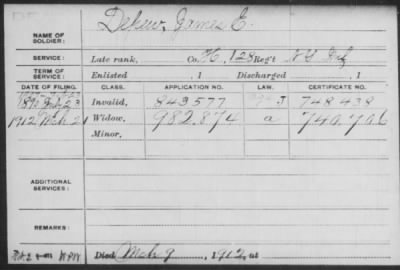 NAME OF SOLDIER: Dekew, James E.
SERVICE: Late rank, Co. H, 128 Reg't N.Y. Inf
TERM OF SERVICE: Enlisted , 1 Discharged , 1
DATE OF FILING. CLASS. APPLICATION NO. LAW. CERTIFICATE NO.
1890 July 23 Invalid, 843577 J 748438
1912 Mch 21 Widow, 982.874 a 740.706
Minor,
ADDITIONAL SERVICES:
REMARKS:
Died Mch 9, 1912, at